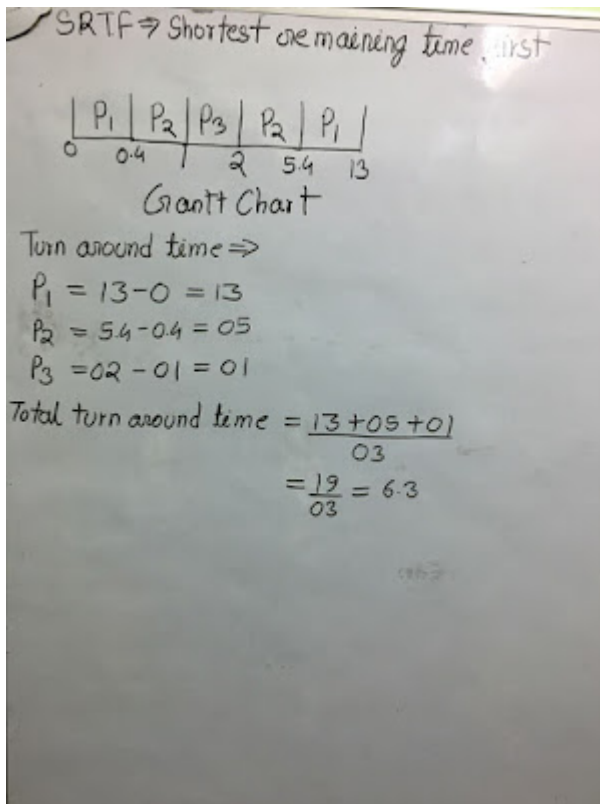 SRTF ⇒ Shortest remaining time first
| P1 | P2 | P3 | P2 | P1 |
0 0.4 1 2 5.4 13
Gantt Chart
Turn around time ⇒
P1 = 13-0 = 13
P2 = 5.4-0.4 = 05
P3 = 02 - 01 = 01
Total turn around time = 13+05+01
03
= 19 = 6.3
03